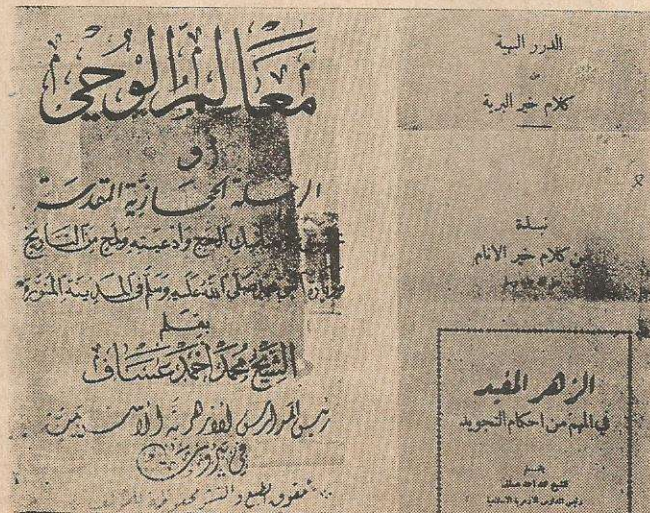 معالم الوحي
أو
الرحلة الحجازية المقدسة
الحج وأدعيته ولمح من التاريخ
صلى الله عليه وسلم في المدينة المنورة
بقلم
الشيخ محمد أحمد عساف
رئيس المدارس الأزهرية الإسلامية
في بيروت
حقوق الطبع والنشر محفوظة للمؤلف
الدرر البهية
من
كلام خير البرية
نبذة
من كلام خير الأنام
الزهر المفيد
في المهم من احكام التجويد
بقلم
الشيخ محمد احمد عساف
رئيس المدارس الازهرية الاسلامية